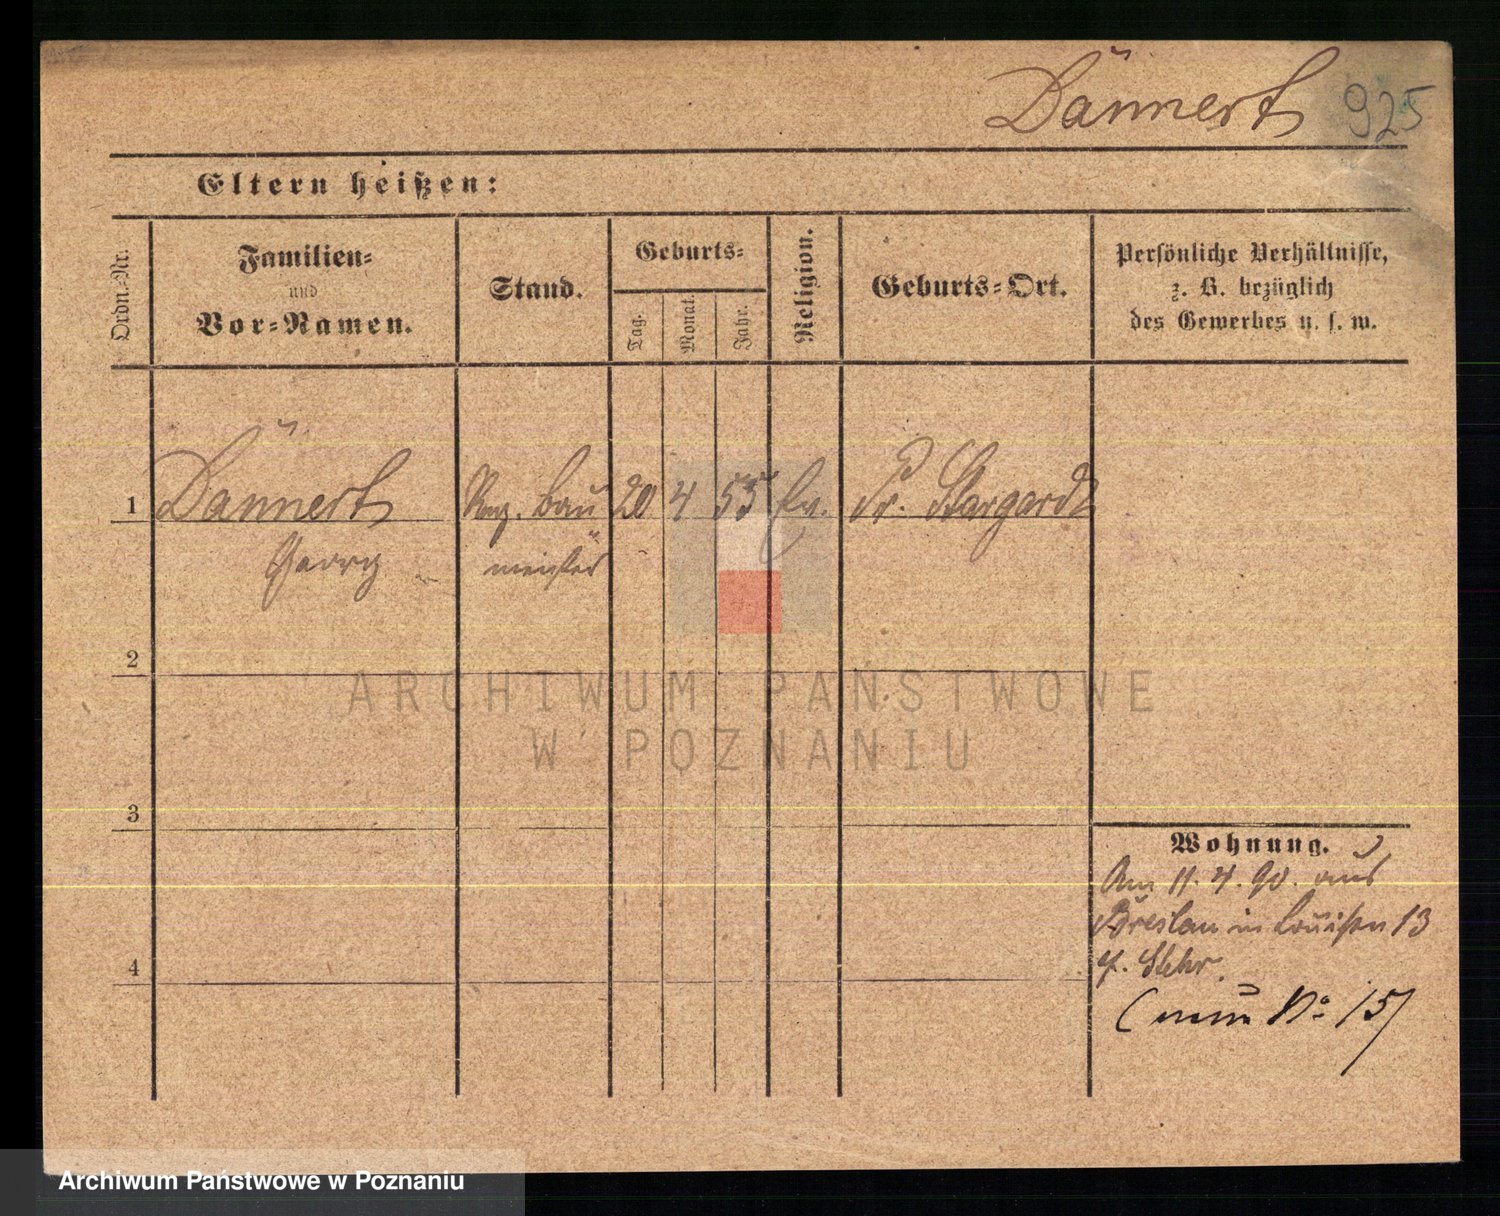 Dännert 925
Eltern heißen:
Ordn.-Nr.
Familien-
und
Vor-Namen.
Stand.
Geburts-
Tag.
Monat.
Jahr.
Religion.
Geburts-Ort.
Persönliche Verhältnisse,
z. B. bezüglich
des Gewerbes u. s. w.
1 Dännert Reg. Bau 20 4 55 Ev. Pr. Stargardt
Georg meister
2
ARCHIWUM PAŃSTWOWE
W POZNANIU
3
Wohnung.
Am 11. 4. 90. aus
Breslau in Louisen 13
Stehr.
(neue No 15)
4
Archiwum Państwowe w Poznaniu